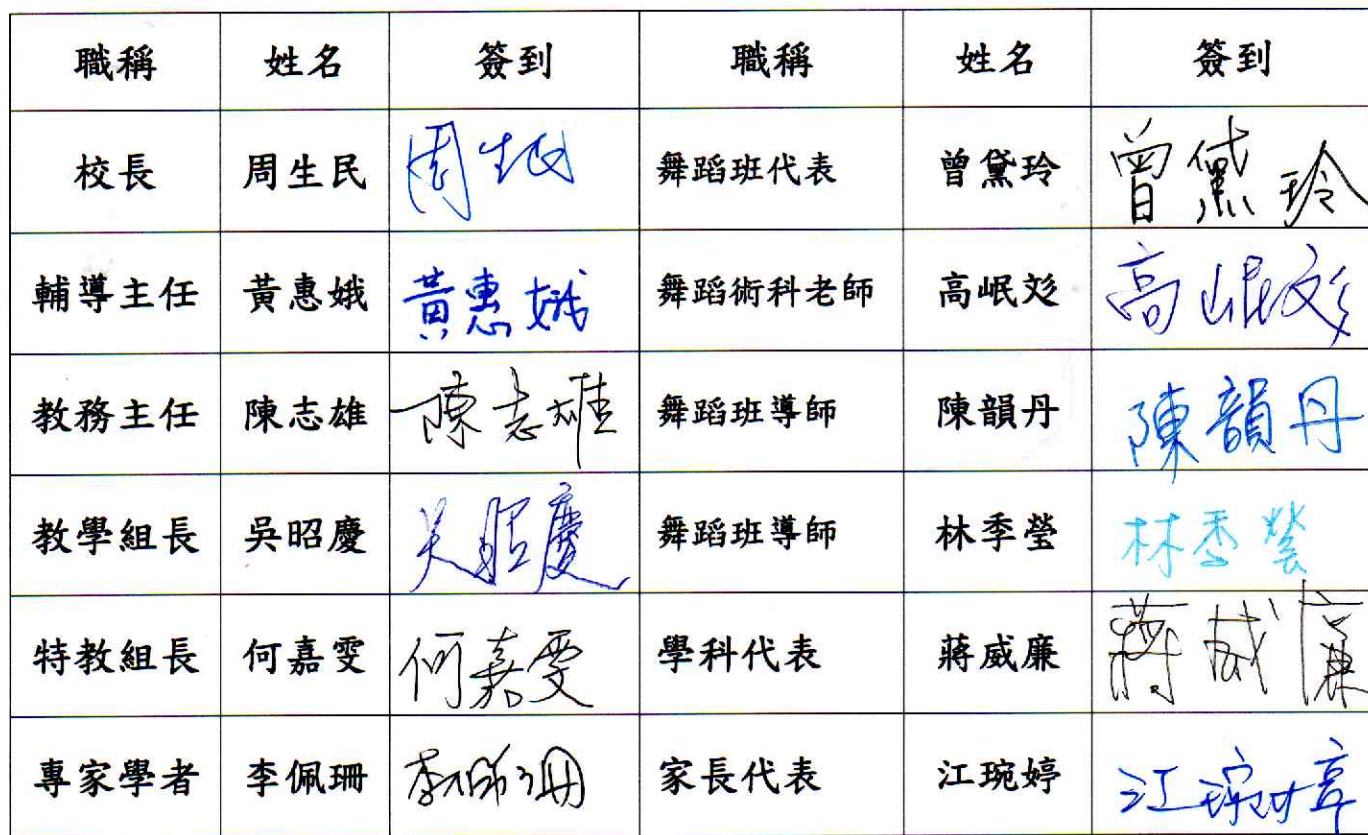 職稱 姓名 簽到 職稱 姓名 簽到
校長 周生民 周生民 舞蹈班代表 曾黛玲 曾黛玲
輔導主任 黃惠娥 黃惠娥 舞蹈術科老師 高岷彣 高岷彣
教務主任 陳志雄 陳志雄 舞蹈班導師 陳韻丹 陳韻丹
教學組長 吳昭慶 吳昭慶 舞蹈班導師 林季瑩 林季瑩
特教組長 何嘉雯 何嘉雯 學科代表 蔣威廉 蔣威廉
專家學者 李佩珊 李佩珊 家長代表 江琬婷 江琬婷